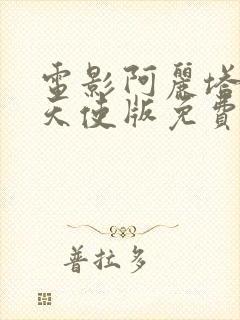 電影阿麗塔
天使版免費
普拉多